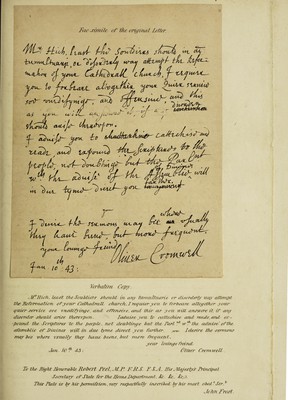 Fac simile of the original Letter.
Mr. Hich, least the Souldiers should in any
tumultuary, or disorderly way attempt the Refor-
mation of your Cathedrall church, I require
you to forbeare altogether your Quire service
soe unedifyinge, and offensive, and this
as you will answere it, if any disorder
should arise thereupon.
I advise you to catechise and
reade, and expound the scriptures to the
people, not doubtinge but the Parliament
with the advise of the assemblie of Divines will
in due tyme direct you further.
I desire the sermons may bee where usually
they have bene, but more frequent,
your lovinge freind
Oliver Cromwell
Jan 10th 43.
Verbatim Copy.
Mr. Hich, least the Souldiers should, in any tumultuarie or disorderly way attempt
the Reformation of your Cathedrall church, I require you to forbeare altogether your
quier service soe unedifyinge and offensive, and this as you will answere it if any
disorder should arise thereupon. I advise you to catechise and reade and ex-
pound the Scripture to the people, not doubtinge but the Part. with the advise of the
assemblie of Divines will in due tyme direct you further. I desire the sermons
may bee where usually they have bene, but more frequent.
your lovinge freind
Jan. 10th 43. Oliver Cromwell.
To the Right Honorable Robert Peel, M.P. F.R.S. F.S.A. His Majesty's Principal
Secretary of State for the Home Department, &c. &c. &c.
This Plate is by his permission, very respectfully inscribed by his most obedt. Servt.
John Frost.